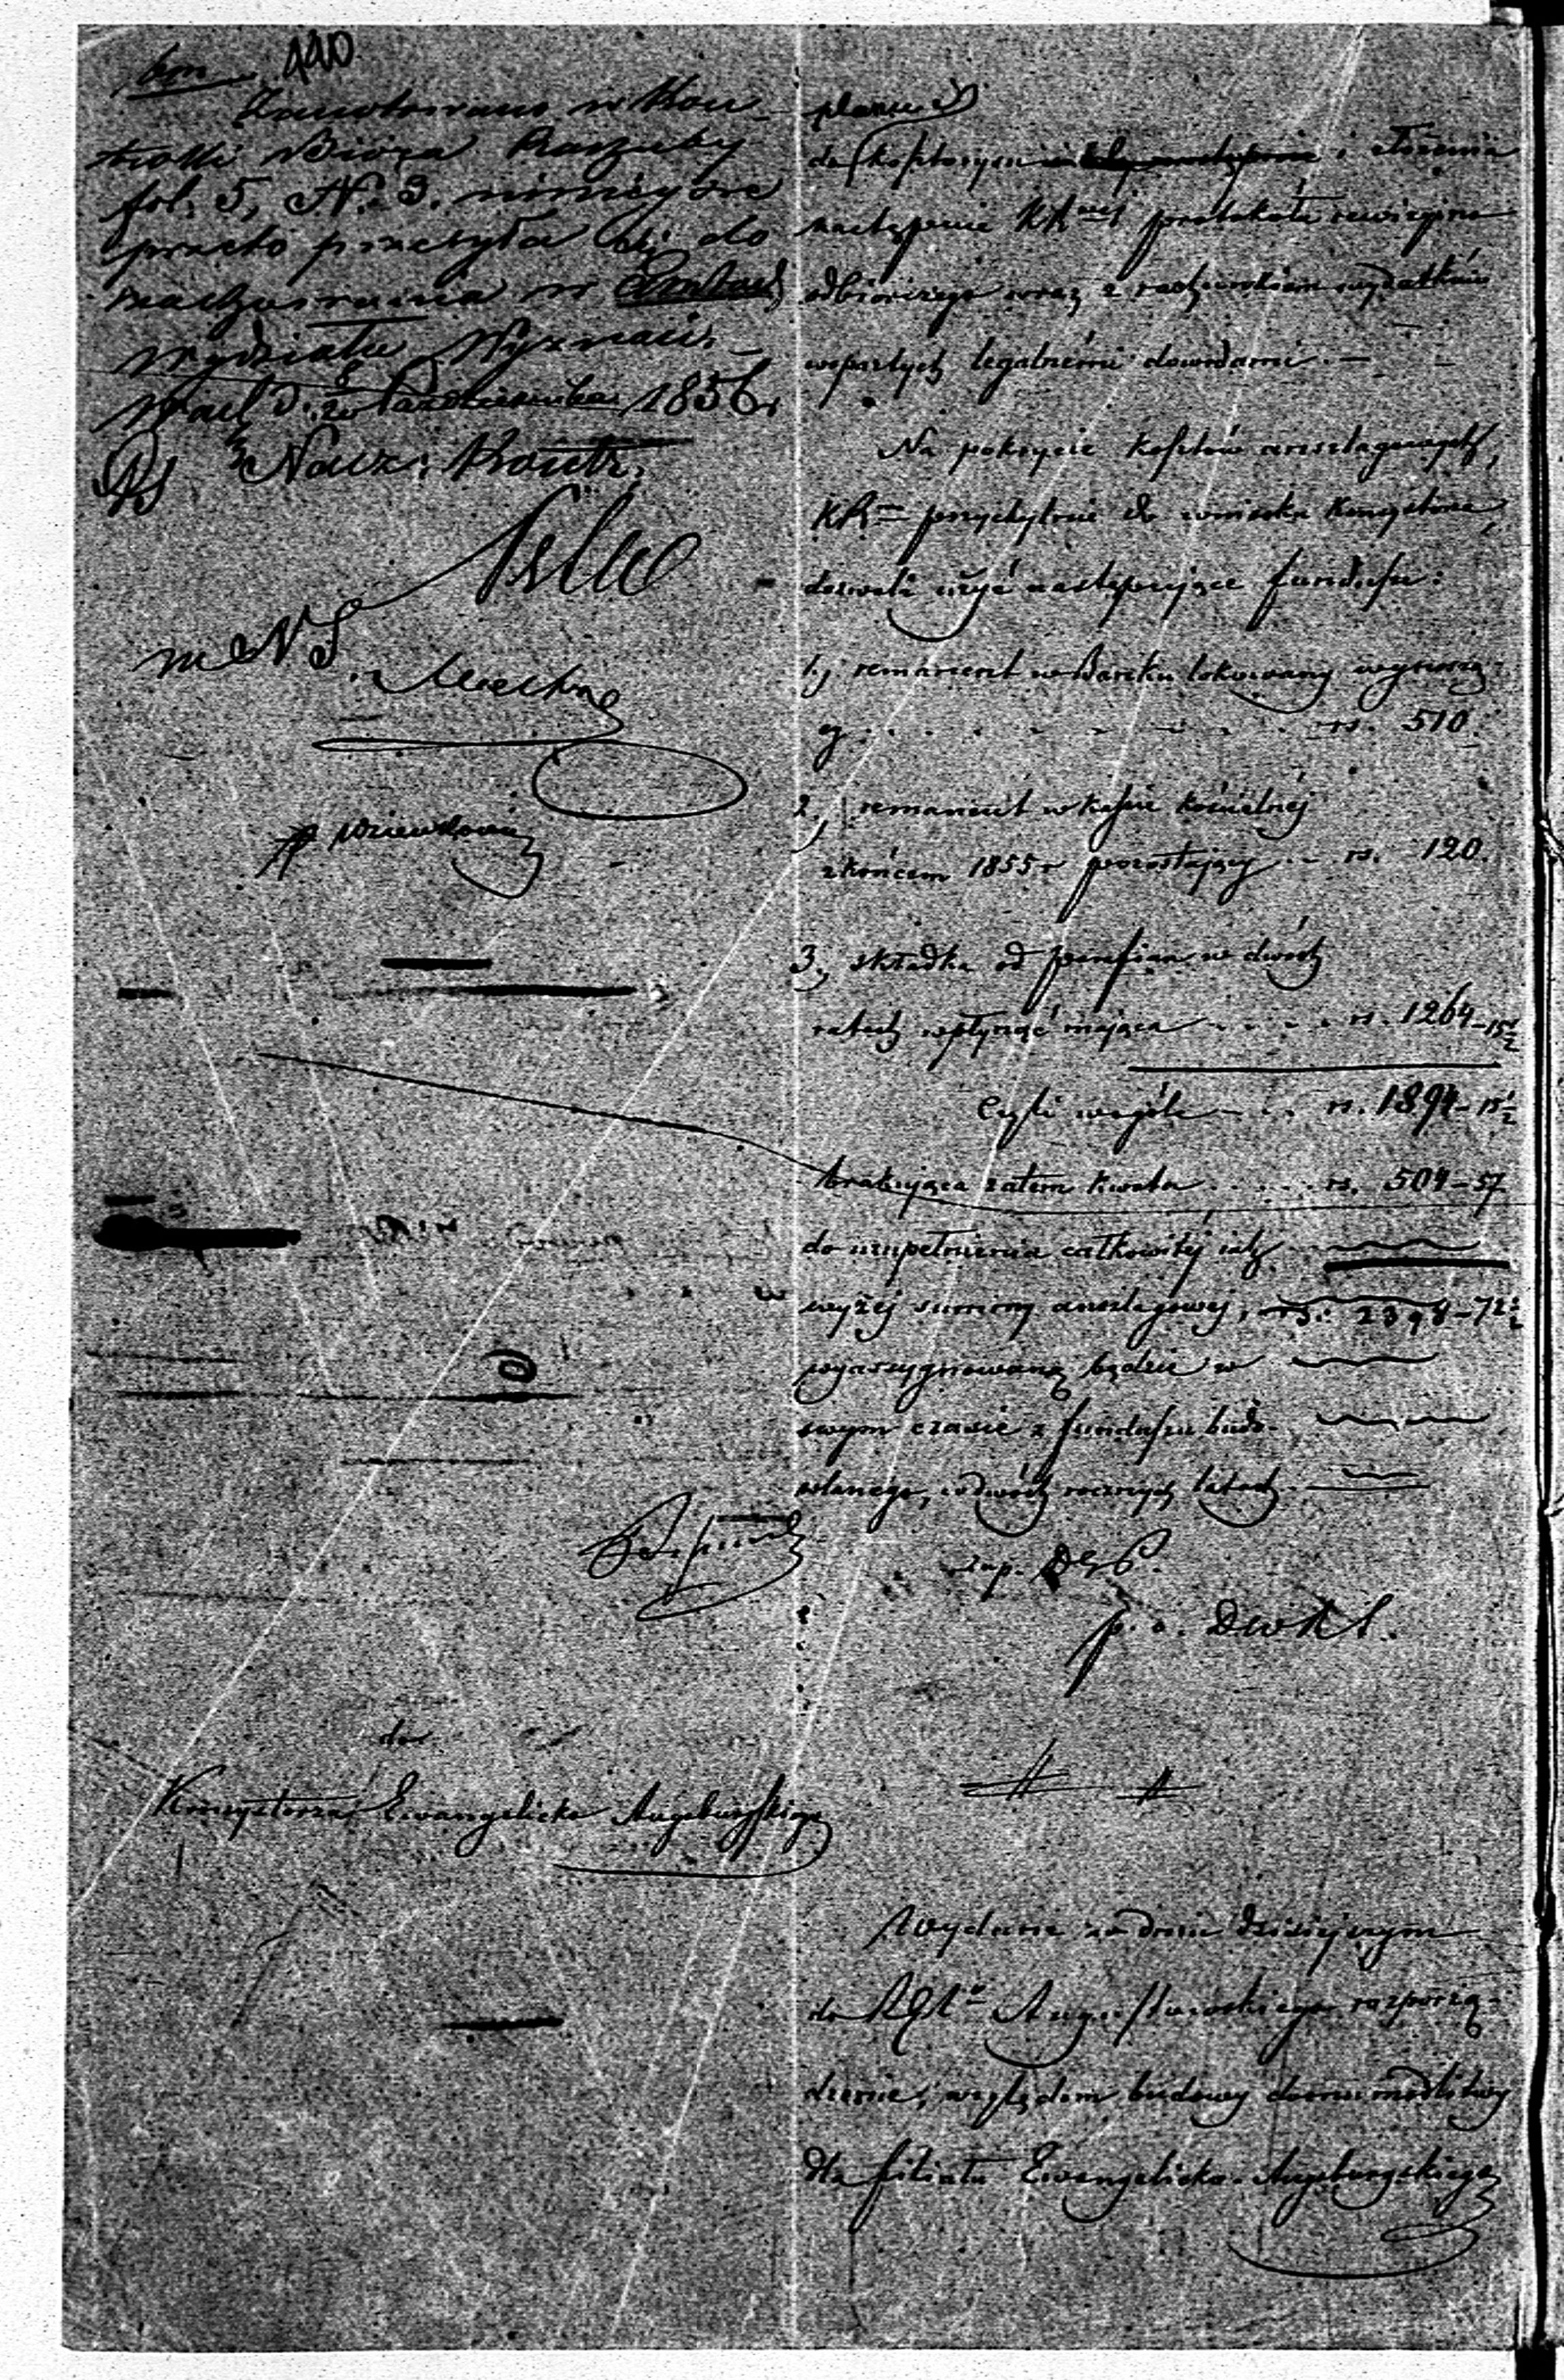 440
Zanotowano w Kon-
trolli Biura Rachuby
fol. 5, N. 3. niniejsze
przeto przesyła się do
w
Wydziału Wyznań.
Października 1856 r.
Nacz: Kontr:
do
Konsystorza Ewangelicko Augsburgskiego
planu
do kosztorysu i złożenia
następnie protokołu rewizyjno
odbiorczego wraz z wydatków
wspartych legalnémi dowodami. —
Na pokrycie kosztów anszlagowych,
KR przychylnie do wniosku Konsystorza,
dozwala użyć następujące fundusze:
1., remanent w Banku lokowany wynoszą-
cy . . . . . . . . rs. 510.
2., remanent w kasie kościelnéj
z końcem 1855 r pozostający . . rs. 120.
3., składka od parafian w dwóch
ratach wpłynąć mająca . . . . rs. 1264-15½
Czyli wogóle . . . rs. 1894-15½
brakująca zatem kwota . . . . rs. 504-57
do uzupełnienia całkowitéj jak
wyżéj summy anszlagowéj, rs: 2398-72½
wyassygnowaną będzie w
swym czasie z funduszu budo-
wlanego, w dwóch rocznych ratach.
p. o. DwKS.
Wydane w dniu dzisiejszym
do RGb Augustowskiego rozporzą-
dzenie, względem budowy domu modlitwy
dla filiału Ewangelicko-Augsburgskiego